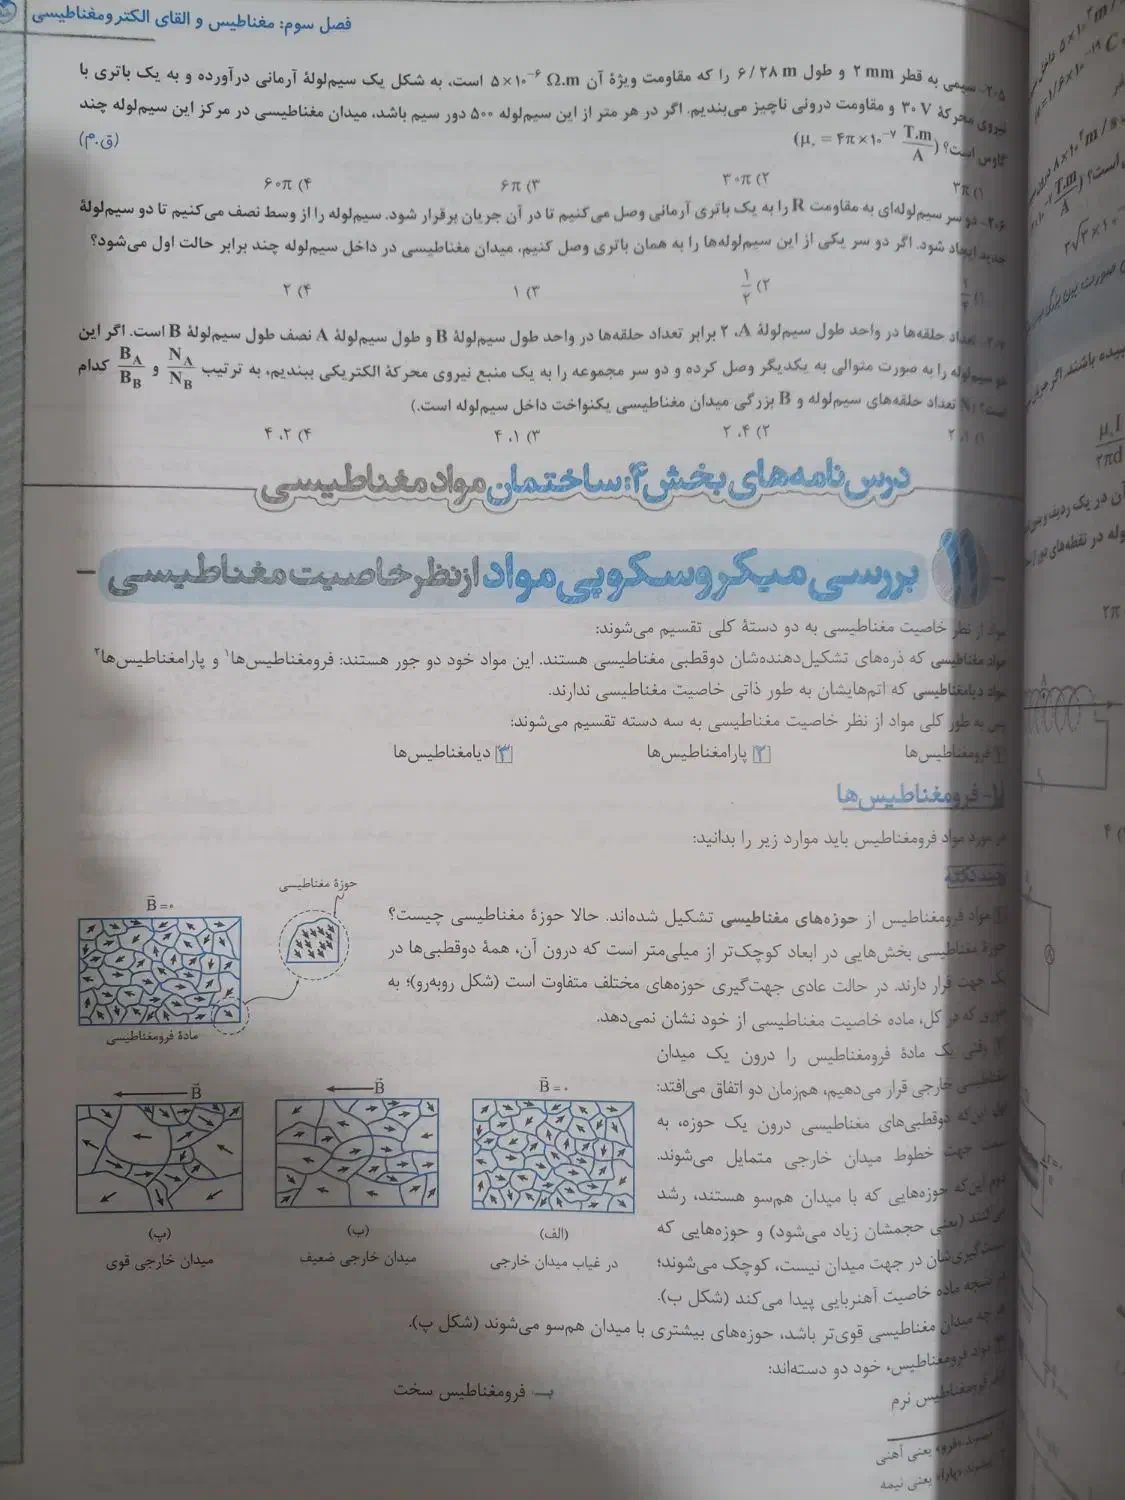 فصل سوم: مغناطیس و القای الکترومغناطیسی
۲۰۵- سیمی به قطر ۲ mm و طول ۶/۲۸ m را که مقاومت ویژهٔ آن ۵×۱۰⁻⁶ Ω.m است، به شکل یک سیم‌لولهٔ آرمانی درآورده و به یک باتری با
نیروی محرکهٔ ۳۰ V و مقاومت درونی ناچیز می‌بندیم. اگر در هر متر از این سیم‌لوله ۵۰۰ دور سیم باشد، میدان مغناطیسی در مرکز این سیم‌لوله چند
گاوس است؟ (μ₀ = ۴π×۱۰⁻⁷ T.m/A) (ق.م)
۱) ۳π ۲) ۳۰π ۳) ۶π ۴) ۶۰π
۲۰۶- دو سر سیم‌لوله‌ای به مقاومت R را به یک باتری آرمانی وصل می‌کنیم تا در آن جریان برقرار شود. سیم‌لوله را از وسط نصف می‌کنیم تا دو سیم‌لولهٔ
جدید ایجاد شود. اگر دو سر یکی از این سیم‌لوله‌ها را به همان باتری وصل کنیم، میدان مغناطیسی در داخل سیم‌لوله چند برابر حالت اول می‌شود؟
۱) ۱/۴ ۲) ۱/۲ ۳) ۱ ۴) ۲
۲۰۷- تعداد حلقه‌ها در واحد طول سیم‌لولهٔ A، ۲ برابر تعداد حلقه‌ها در واحد طول سیم‌لولهٔ B و طول سیم‌لولهٔ A نصف طول سیم‌لولهٔ B است. اگر این
دو سیم‌لوله را به صورت متوالی به یکدیگر وصل کرده و دو سر مجموعه را به یک منبع نیروی محرکهٔ الکتریکی ببندیم، به ترتیب N_A/N_B و B_A/B_B کدام
است؟ (N تعداد حلقه‌های سیم‌لوله و B بزرگی میدان مغناطیسی یکنواخت داخل سیم‌لوله است.)
۱) ۱، ۲ ۲) ۴، ۲ ۳) ۱، ۴ ۴) ۲، ۴
درس‌نامه‌های بخش ۴: ساختمان مواد مغناطیسی
۱۱ بررسی میکروسکوپی مواد از نظر خاصیت مغناطیسی
مواد از نظر خاصیت مغناطیسی به دو دستهٔ کلی تقسیم می‌شوند:
مواد مغناطیسی که ذره‌های تشکیل‌دهنده‌شان دوقطبی مغناطیسی هستند. این مواد خود دو جور هستند: فرومغناطیس‌ها۱ و پارامغناطیس‌ها۲
مواد دیامغناطیسی که اتم‌هایشان به طور ذاتی خاصیت مغناطیسی ندارند.
پس به طور کلی مواد از نظر خاصیت مغناطیسی به سه دسته تقسیم می‌شوند:
۱ فرومغناطیس‌ها ۲ پارامغناطیس‌ها ۳ دیامغناطیس‌ها
۱- فرومغناطیس‌ها
در مورد مواد فرومغناطیس باید موارد زیر را بدانید:
چند نکته
۱ مواد فرومغناطیس از حوزه‌های مغناطیسی تشکیل شده‌اند. حالا حوزهٔ مغناطیسی چیست؟
حوزهٔ مغناطیسی بخش‌هایی در ابعاد کوچک‌تر از میلی‌متر است که درون آن، همهٔ دوقطبی‌ها در
یک جهت قرار دارند. در حالت عادی جهت‌گیری حوزه‌های مختلف متفاوت است (شکل روبه‌رو)؛ به
طوری که در کل، ماده خاصیت مغناطیسی از خود نشان نمی‌دهد.
حوزهٔ مغناطیسی
B=۰
مادهٔ فرومغناطیسی
۲ وقتی یک مادهٔ فرومغناطیس را درون یک میدان
مغناطیسی خارجی قرار می‌دهیم، هم‌زمان دو اتفاق می‌افتد:
اول این‌که دوقطبی‌های مغناطیسی درون یک حوزه، به
سمت جهت خطوط میدان خارجی متمایل می‌شوند.
دوم این‌که حوزه‌هایی که با میدان هم‌سو هستند، رشد
می‌کنند (یعنی حجمشان زیاد می‌شود) و حوزه‌هایی که
سمت‌گیری‌شان در جهت میدان نیست، کوچک می‌شوند؛
در نتیجه ماده خاصیت آهنربایی پیدا می‌کند (شکل ب).
B=۰
(الف)
در غیاب میدان خارجی
B
(ب)
میدان خارجی ضعیف
B
(پ)
میدان خارجی قوی
هر چه میدان مغناطیسی قوی‌تر باشد، حوزه‌های بیشتری با میدان هم‌سو می‌شوند (شکل پ).
۳ مواد فرومغناطیس، خود دو دسته‌اند:
الف- فرومغناطیس نرم ب- فرومغناطیس سخت
۱- پسوند «فرو» یعنی آهنی
۲- پسوند «پارا» یعنی نیمه